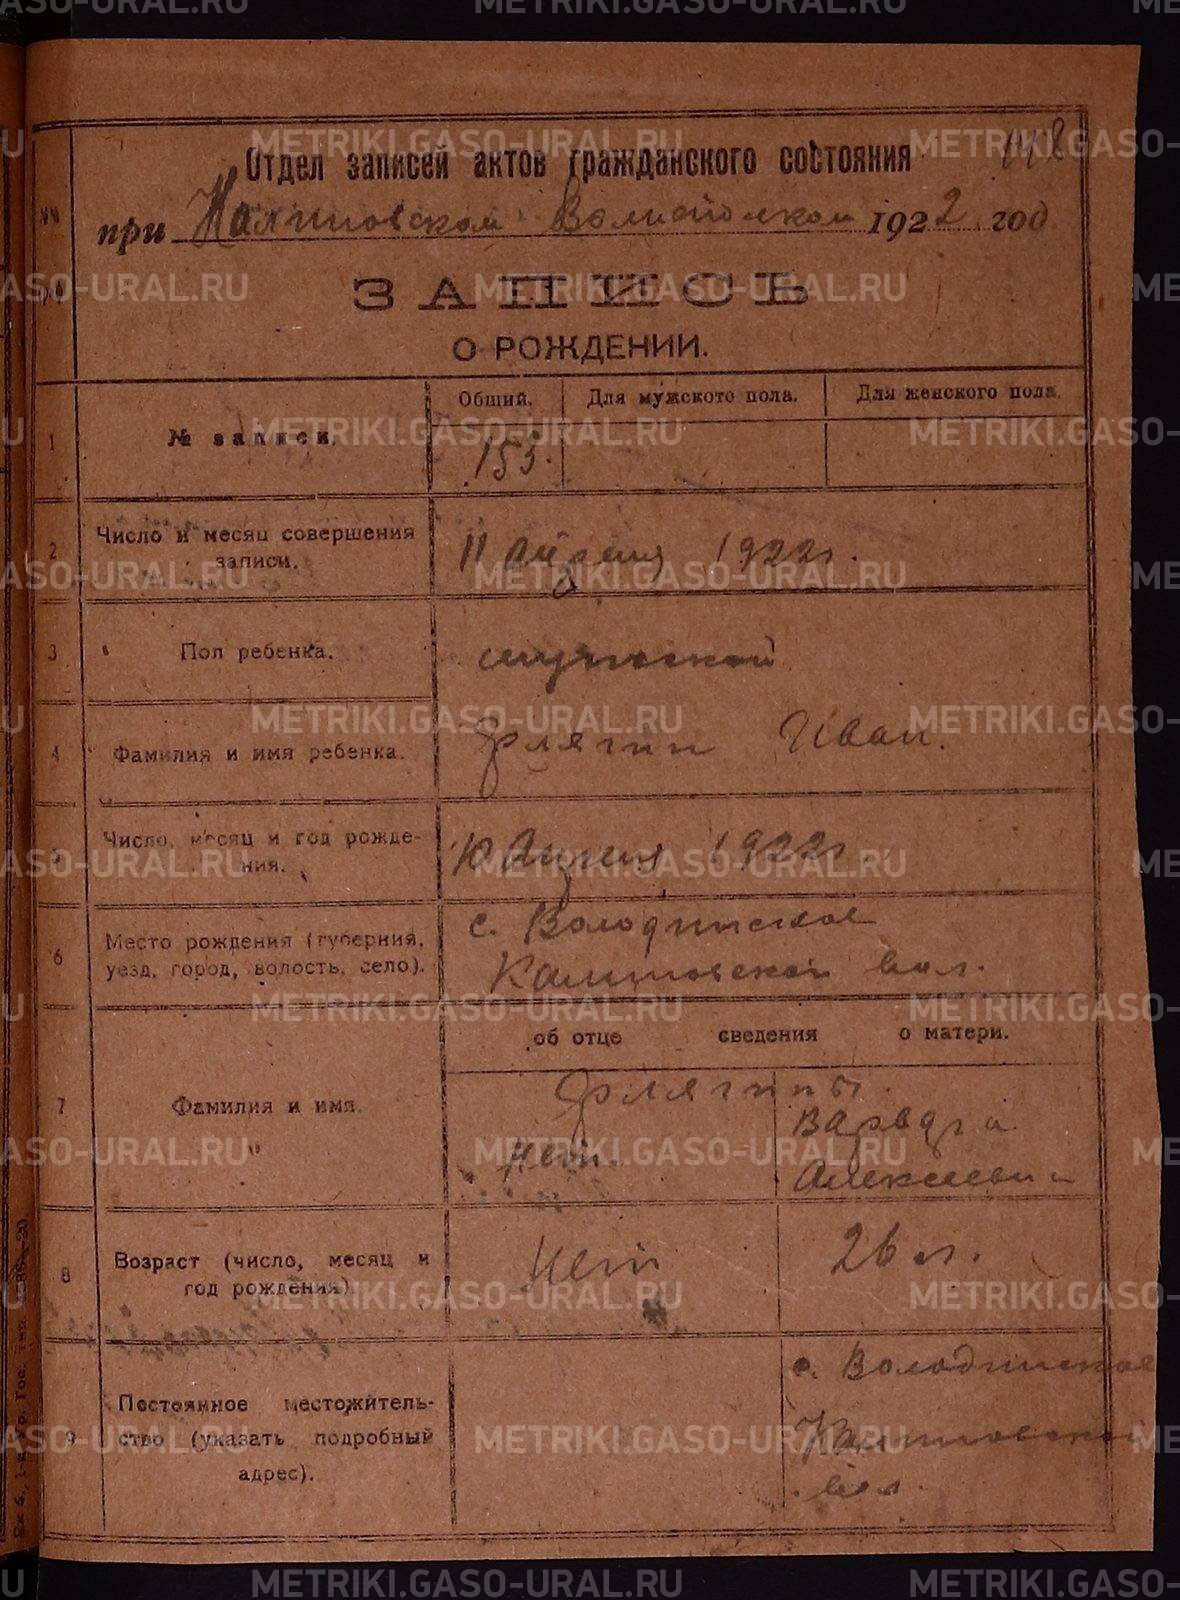 148
Отдел записей актов гражданского состояния
при Калиновском Волисполком 1922 год
ЗАПИСЬ
О РОЖДЕНИИ.
Общий. Для мужского пола. Для женского пола.
1 № записи. 153.
2 Число и месяц совершения
записи. 11 Апреля 1922 г.
3 Пол ребенка. мужской
4 Фамилия и имя ребенка. Флягин Иван.
5 Число, месяц и год рожде-
ния. 10 Апреля 1922 г.
6 Место рождения (губерния,
уезд, город, волость, село). с. Володинское
вол.
об отце сведения о матери.
7 Фамилия и имя. Флягины.
Нет. Варвара
Алексеевна
8 Возраст (число, месяц и
год рождения). Нет 26 л.
9 Постоянное местожитель-
ство (указать подробный
адрес). с. Володинское
вол.
METRIKI.GASO-URAL.RU